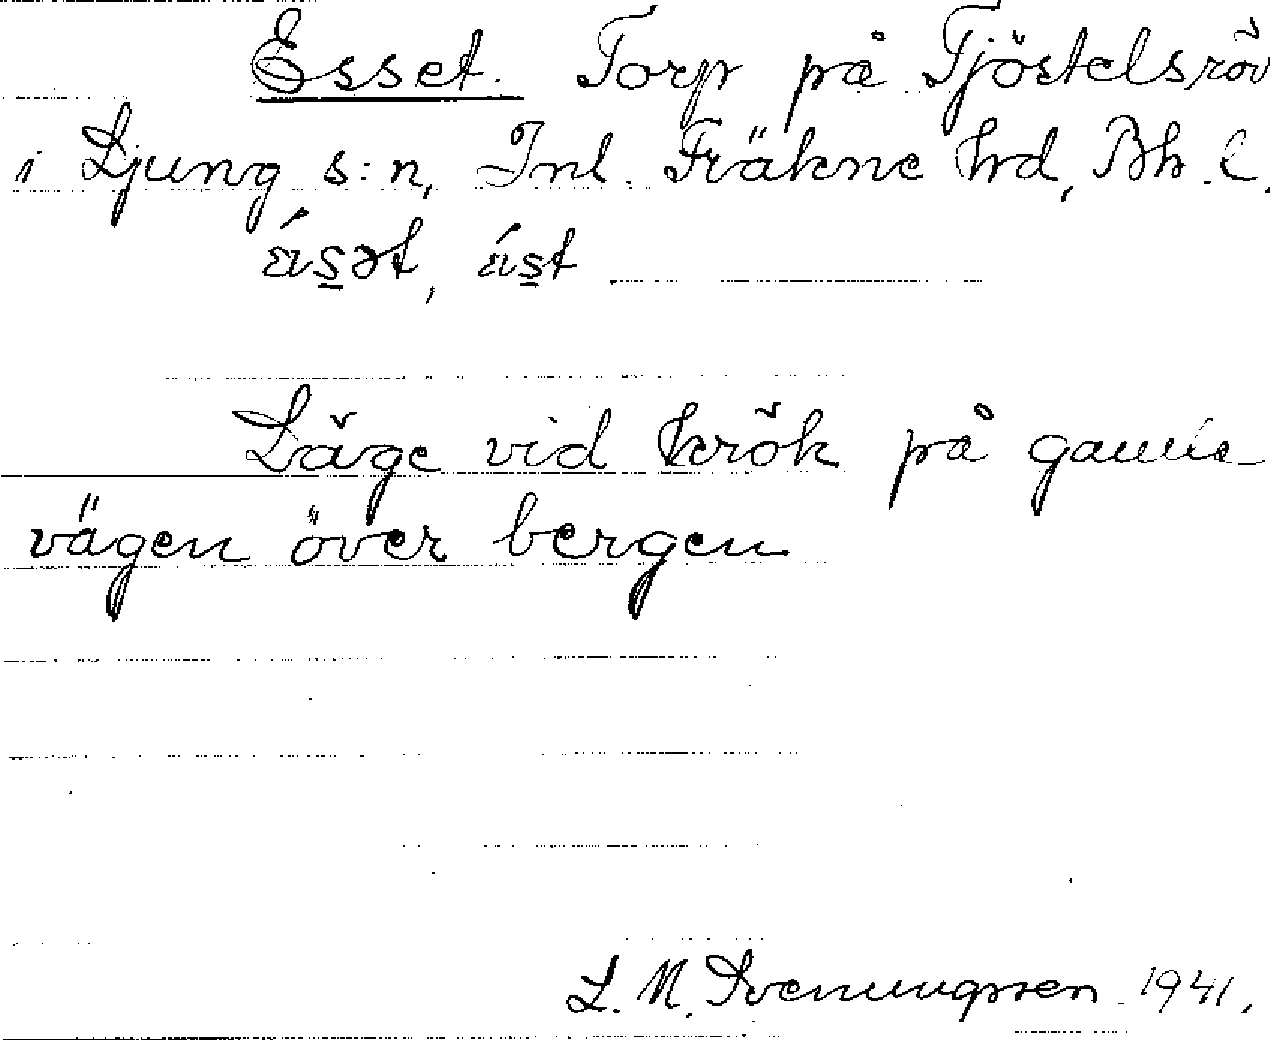 Esset. Torp på Tjöstelsröv
i Ljung s:n, Inl. Fräkne hrd, Bh. l.
Läge vid krök på gamla
vägen över bergen
L. M. Svenungsson 1941.